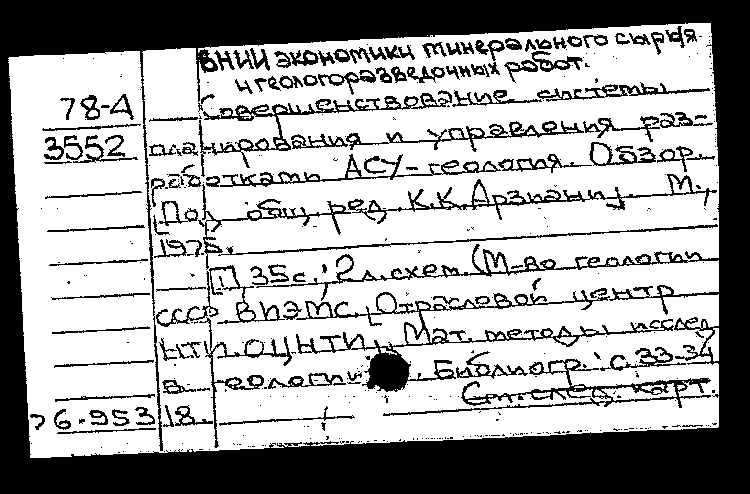 ВНИИ экономики минерального сырья
и геологоразведочных работ.
78-4
Совершенствование системы
3552
планирования и управления раз-
работками АСУ-геология. Обзор.
[Под общ. ред. К.К. Арзиани]. М.,
1975.
[1], 35 с.; 2 л. схем. (М-во геологии
СССР. ВИЭМС. Отраслевой центр
НТИ. ОЦНТИ]. Мат. методы исслед
в геологии . Библиогр.: с. 33-34
Ст. след. карт.
76-953 18.